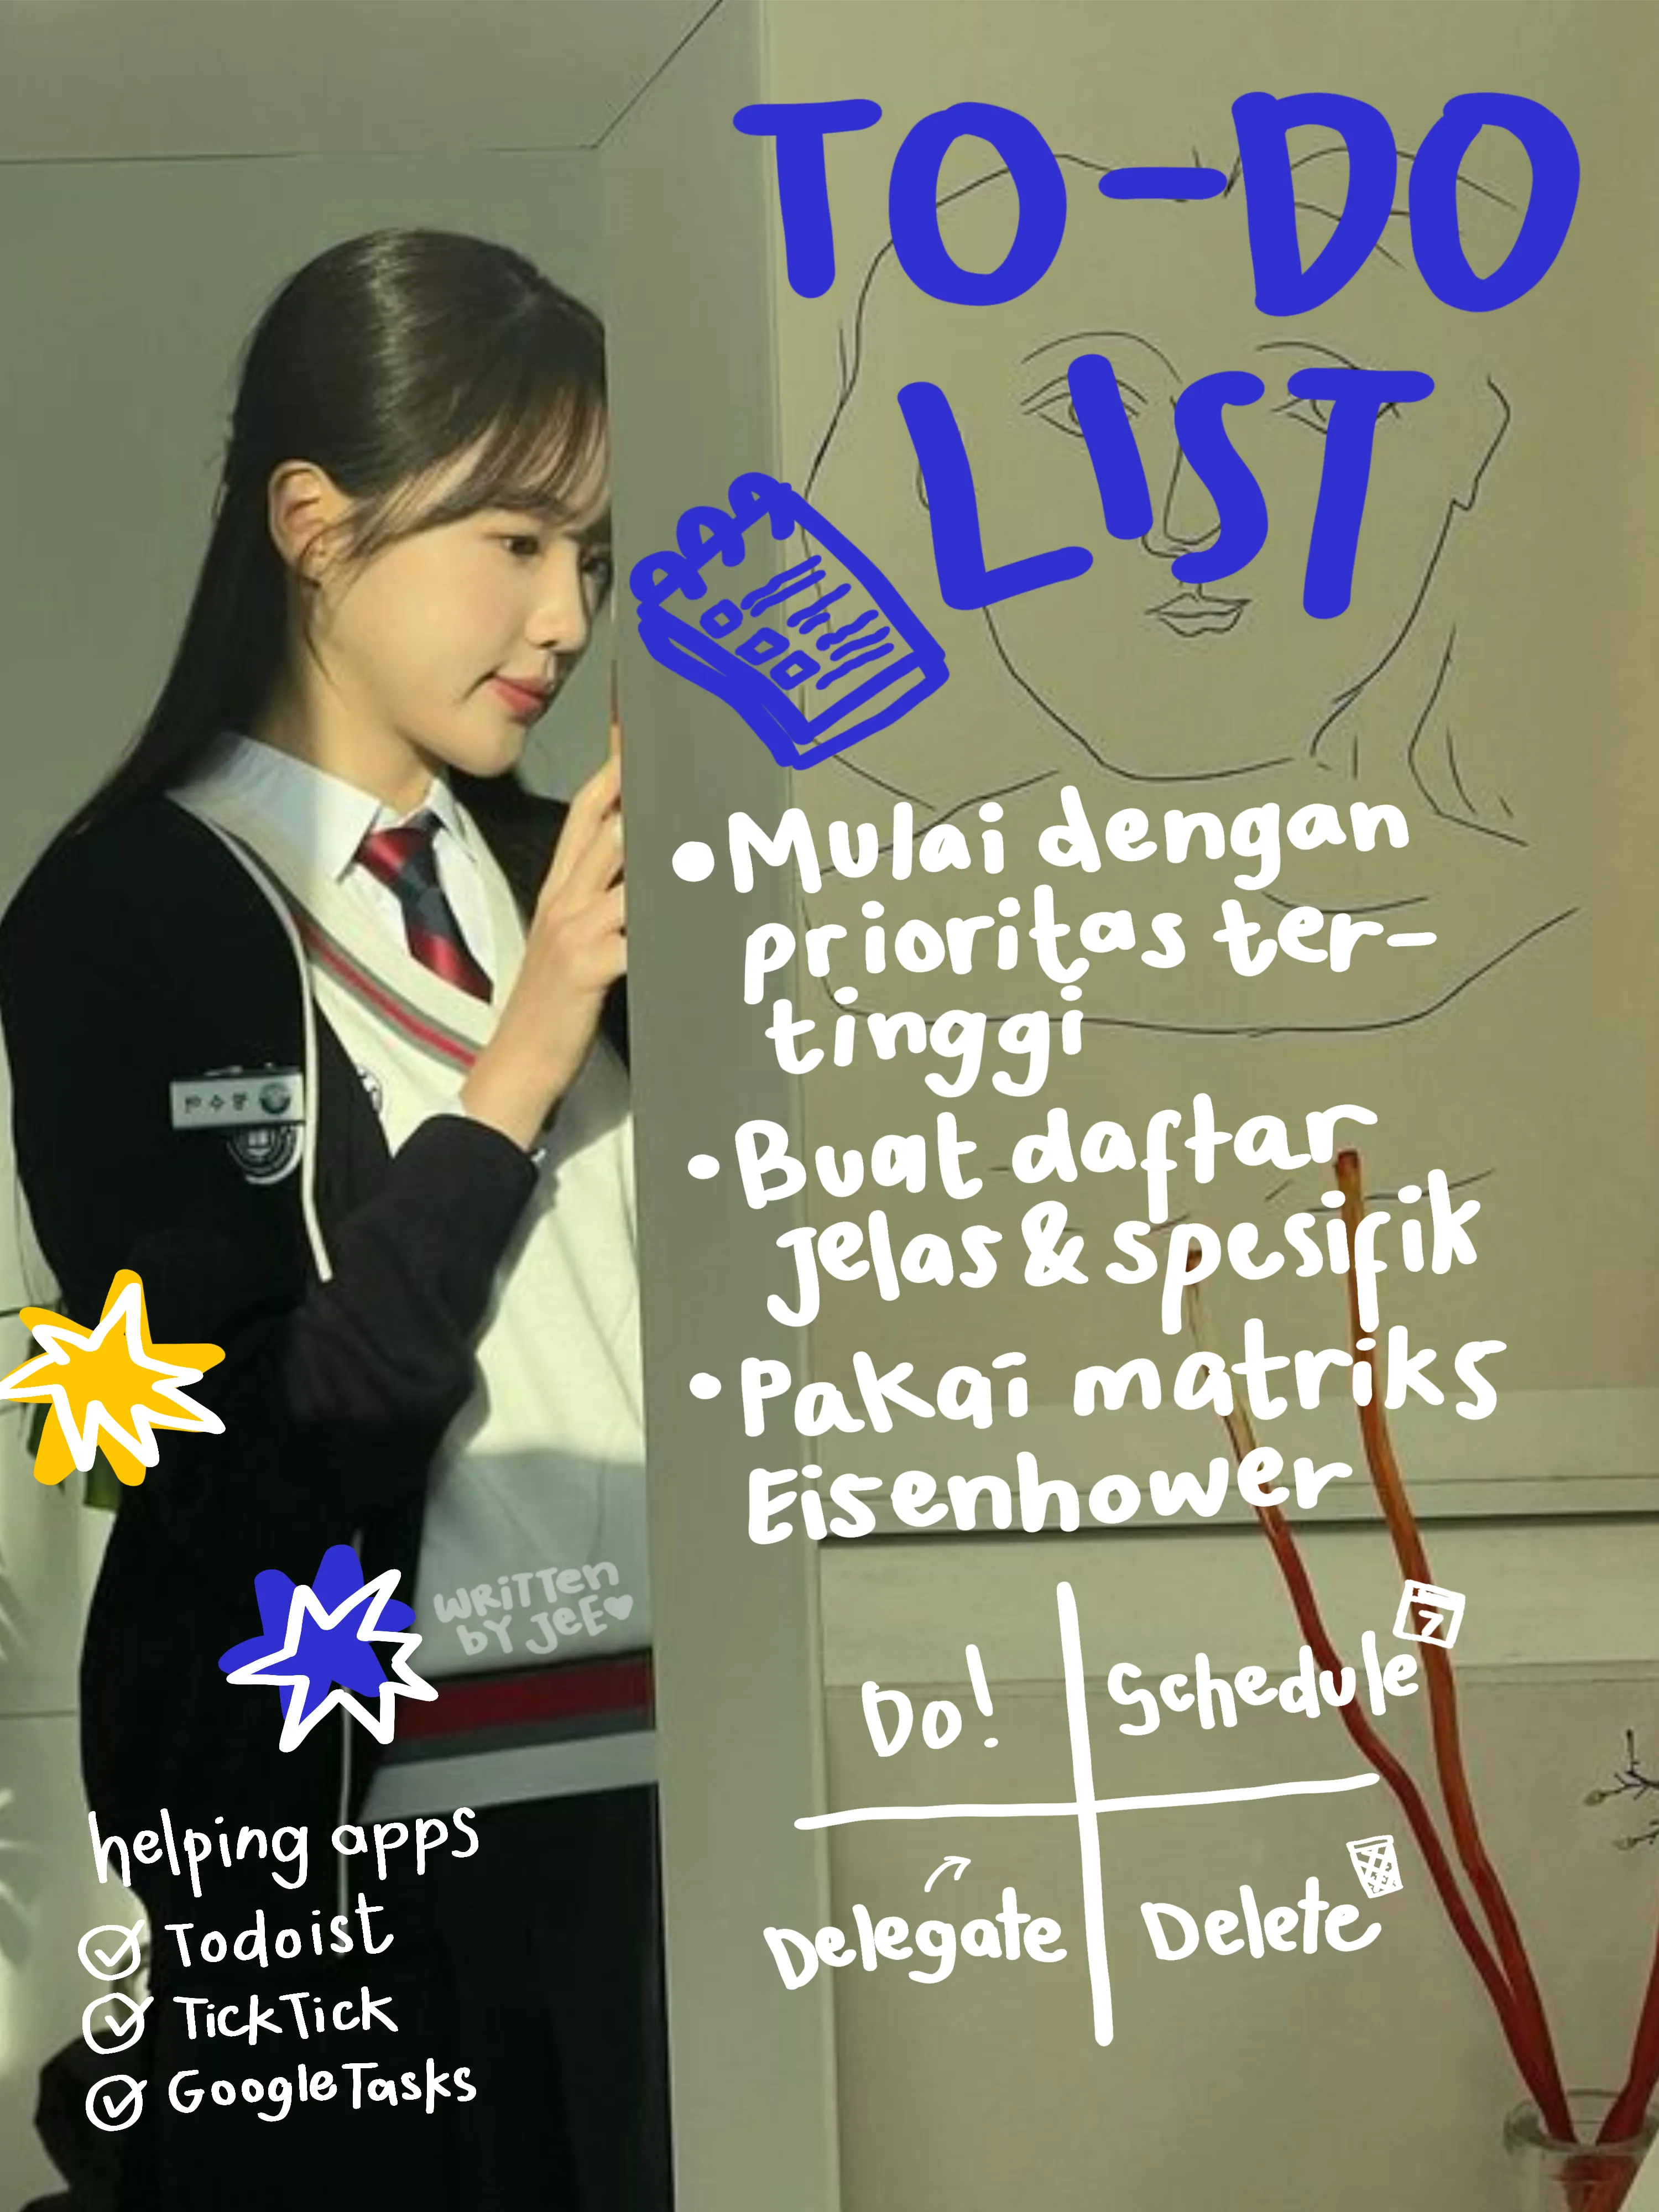 TO-DO
LIST
•Mulai dengan
prioritas ter-
tinggi
•Buat daftar
Jelas & spesifik
•Pakai matriks
Eisenhower
WRITTEN
BY JEE
Do!
Schedule
7
Delegate
Delete
helping apps
Todoist
TickTick
Google Tasks